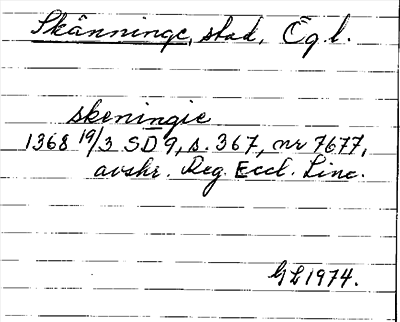 Skänninge, stad, Ög l.
skeningie
1368 19/3 SD 9, s. 367, nr 7677,
avskr. Reg. Eccl. Linc.
GL 1974.